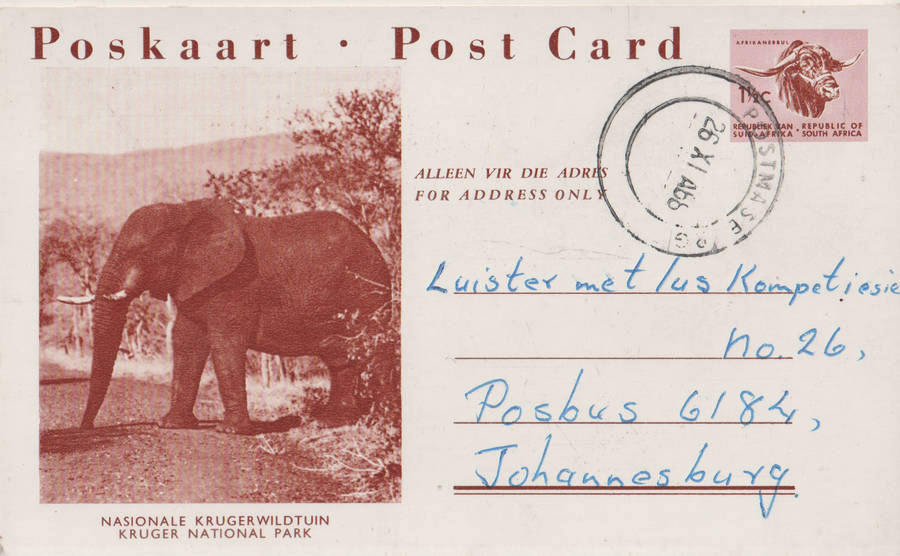 Poskaart · Post Card
AFRIKANERBUL
1½C
REPUBLIEK VAN REPUBLIC OF
SUID-AFRIKA SOUTH AFRICA
POSTMASE
26 XI
ALLEEN VIR DIE ADRES
FOR ADDRESS ONLY
Luister met lus Kompetiesie
No. 26,
Posbus 6184,
Johannesburg.
NASIONALE KRUGERWILDTUIN
KRUGER NATIONAL PARK